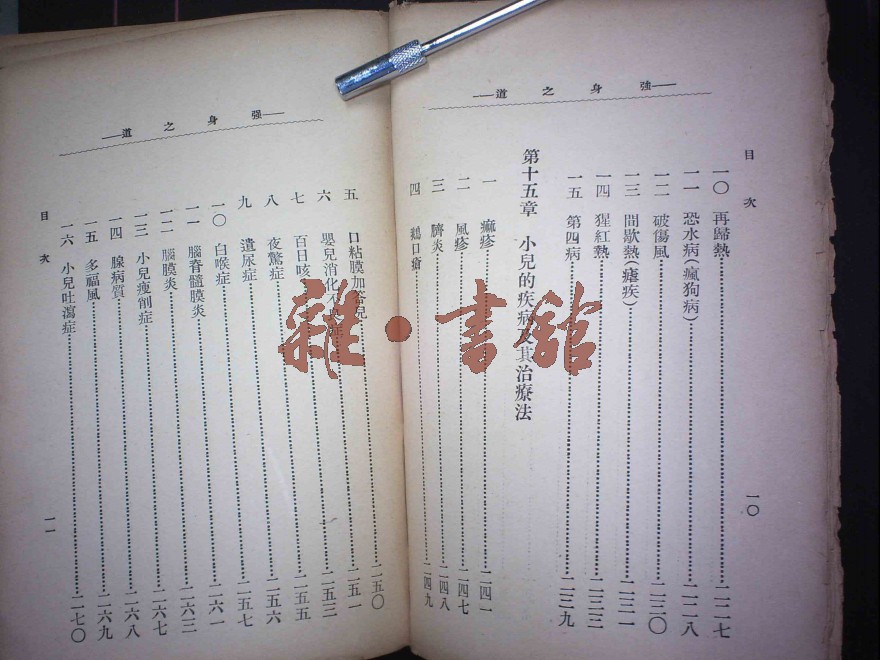 —强身之道—
目次
一〇 再歸熱…二二七
一一 恐水病(瘋狗病)…二二八
一二 破傷風…二三〇
一三 間歇熱(瘧疾)…二三一
一四 猩紅熱…二三三
一五 第四病…二三九
第十五章 小兒的疾病及其治療法
一 痲疹…二四一
二 風疹…二四七
三 臍炎…二四八
四 鵝口瘡…二四九
一〇
—强身之道—
五 口粘膜加答兒…二五〇
六 嬰兒消化不良症…二五一
七 百日咳…二五三
八 夜驚症…二五五
九 遺尿症…二五六
一〇 白喉症…二五七
一一 腦脊髓膜炎…二六一
一二 腦膜炎…二六三
一三 小兒瘦削症…二六七
一四 腺病質…二六八
一五 多福風…二六九
一六 小兒吐瀉症…二七〇
目次
一一
雜·書館